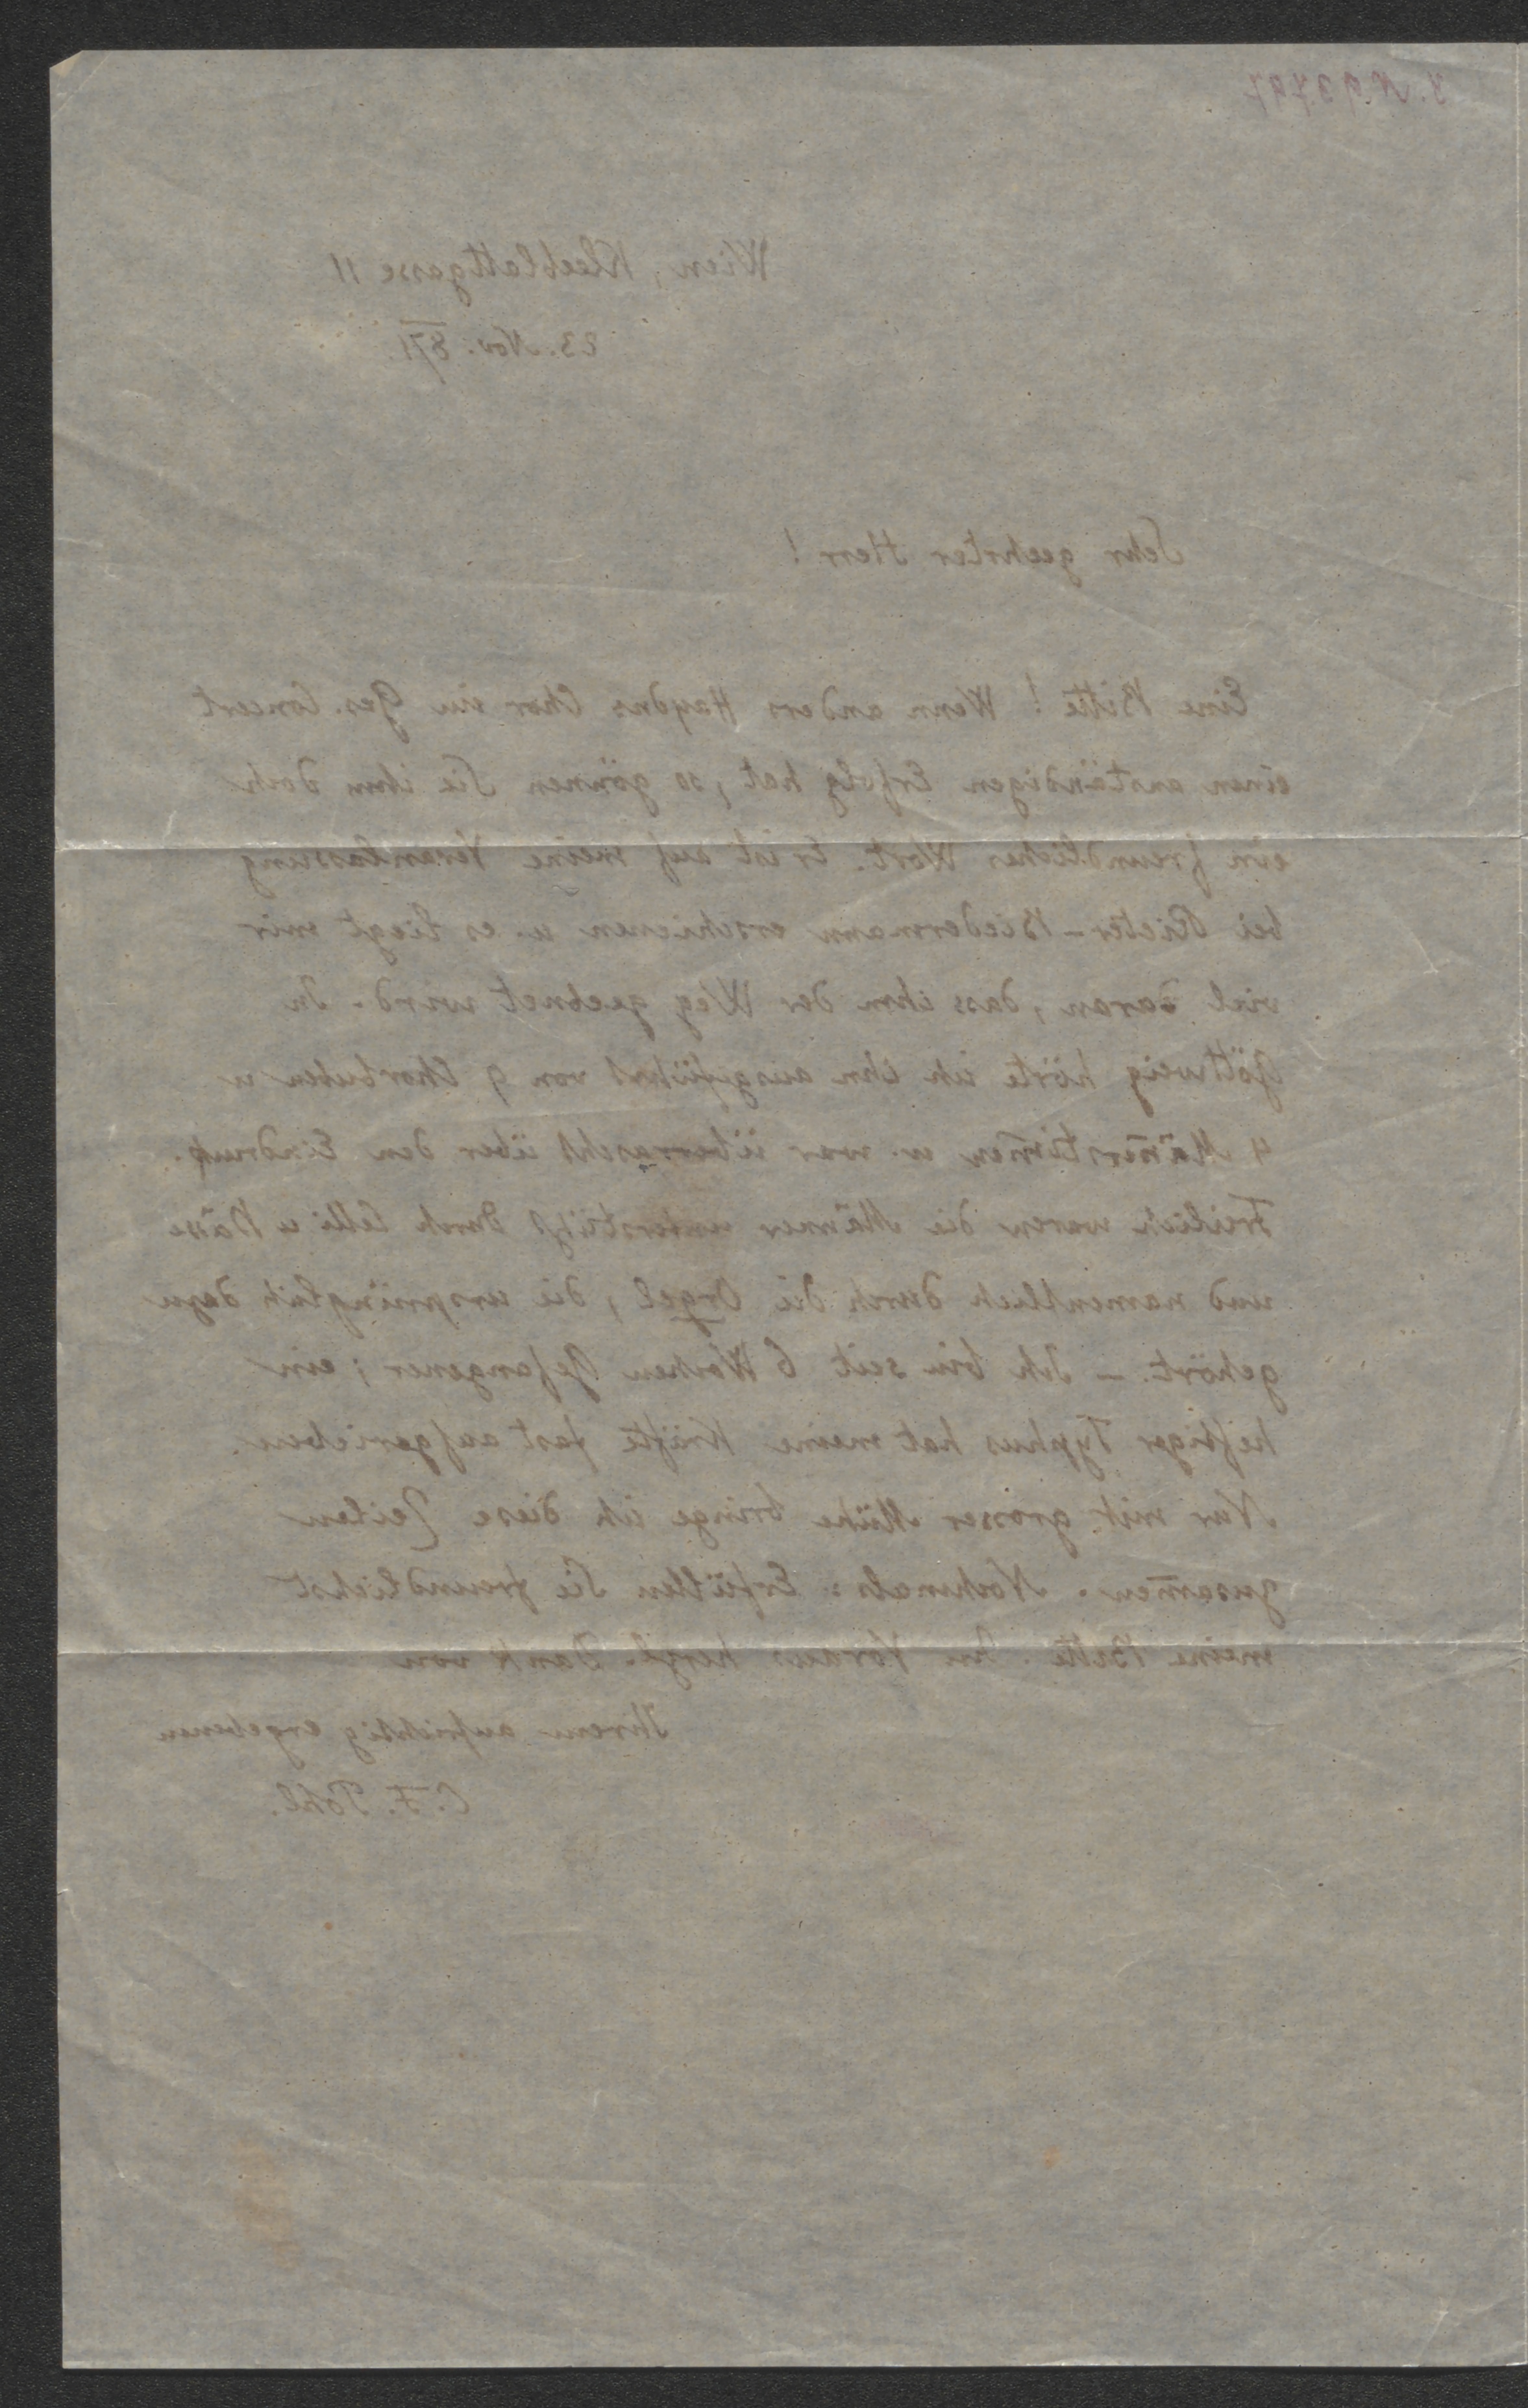 J. N 93797
Wien, Kleeblattgasse 11
23. Nov. 871
Sehr geehrter Herr!
Eine Bitte! Wenn anders Haydns Chor im Ges. Concert
einen anständigen Erfolg hat, so gönnen Sie ihm doch
ein freundliches Wort. Er ist auf meine Veranlassung
bei Rieter-Biedermann erschienen u. es liegt mir
viel daran, dass ihm der Weg geebnet wird. In
Göttweig hörte ich ihn ausgeführt von 9 Chorbuben u
4 Mañerstim̄en u. war überrascht über den Eindruck.
Freilich waren die Männer unterstützt durch Celli u Bässe
und namentlich durch die Orgel, die ursprünglich dazu
gehört. – Ich bin seit 6 Wochen Gefangener; ein
heftiger Typhus hat meine Kräfte fast aufgerieben.
Nur mit grosser Mühe bringe ich diese Zeilen
zusam̄en. Nochmals: Erfüllen Sie freundlichst
meine Bitte. Im Voraus herzl. Dank von
Ihrem aufrichtig ergebenen
C. F. Pohl.